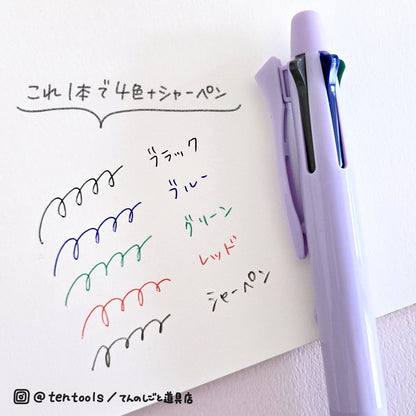 これ1本で4色+シャーペン
ブラック
ブルー
グリーン
レッド
シャーペン
@tentools/てんのしごと道具店